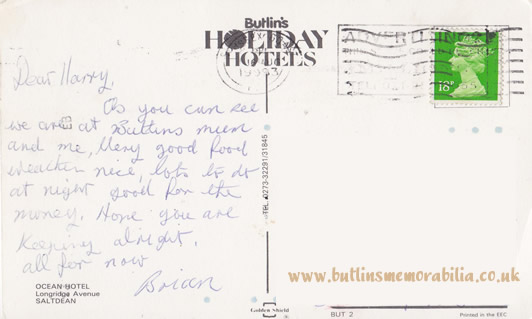 Butlin's
HOLIDAY
HOTELS
Dear Harry,
As you can see
we are at Butlins mum
and me, Very good food
weather nice, lots to do
at night good for the
money. Hope you are
Keeping alright,
all for now
Brian
OCEAN HOTEL
Longridge Avenue
SALTDEAN
TEL. 0273-32291/31845
Golden Shield
BUT 2
Printed in the EEC
www.butlinsmemorabilia.co.uk